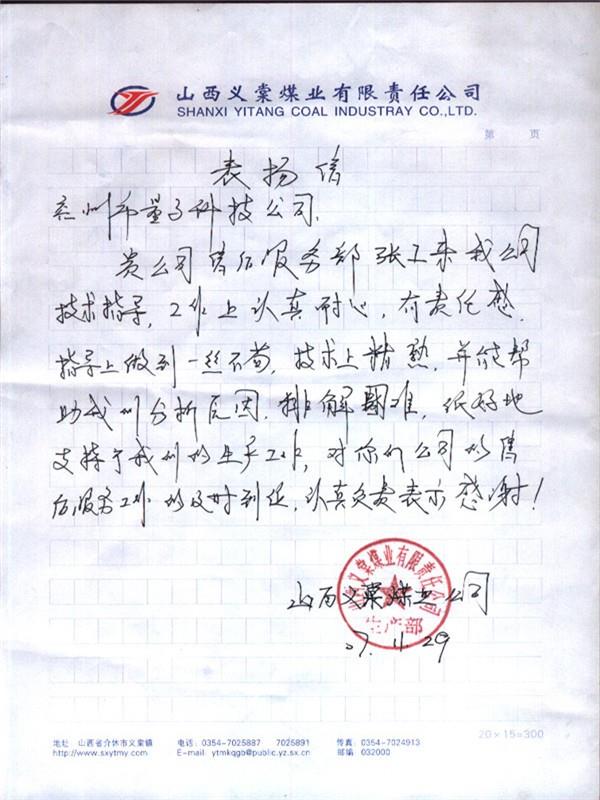 山西义棠煤业有限责任公司
SHANXI YITANG COAL INDUSTRAY CO.,LTD.
第 页
表扬信
兰州市量子科技公司,
贵公司售后服务部张工来我公司
技术指导,工作上认真耐心,有责任感.
指导上做到一丝不苟,技术上精熟,并能帮
助我们分析原因,排解困难,很好地
支持了我们的生产工作,对你们公司的售
后服务工作的及时到位,认真负责表示感谢!
山西义棠煤业公司
山西义棠煤业有限责任公司
生产部
07.11.29
20×15=300
地址 山西省介休市义棠镇 电话:0354-7025887 7025891 传真:0354-7024913
http://www.sxytmy.com E-mail ytmkqgb@public.yz.sx.cn 邮编 032000